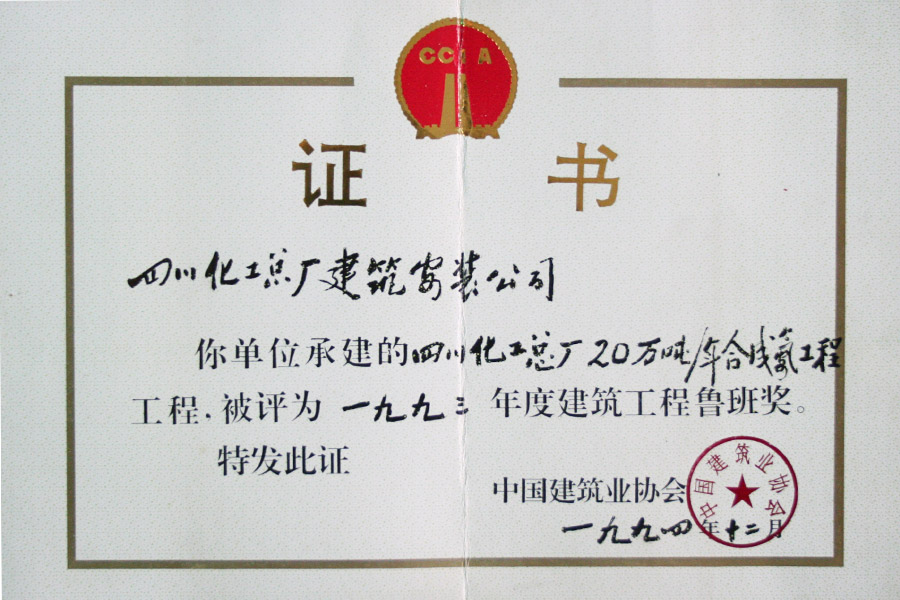 CCIA
证书
四川化工总厂建筑安装公司
你单位承建的四川化工总厂20万吨/年合成氨工程
工程,被评为一九九三年度建筑工程鲁班奖。
特发此证
中国建筑业协会
中国建筑业协会
一九九四年十二月